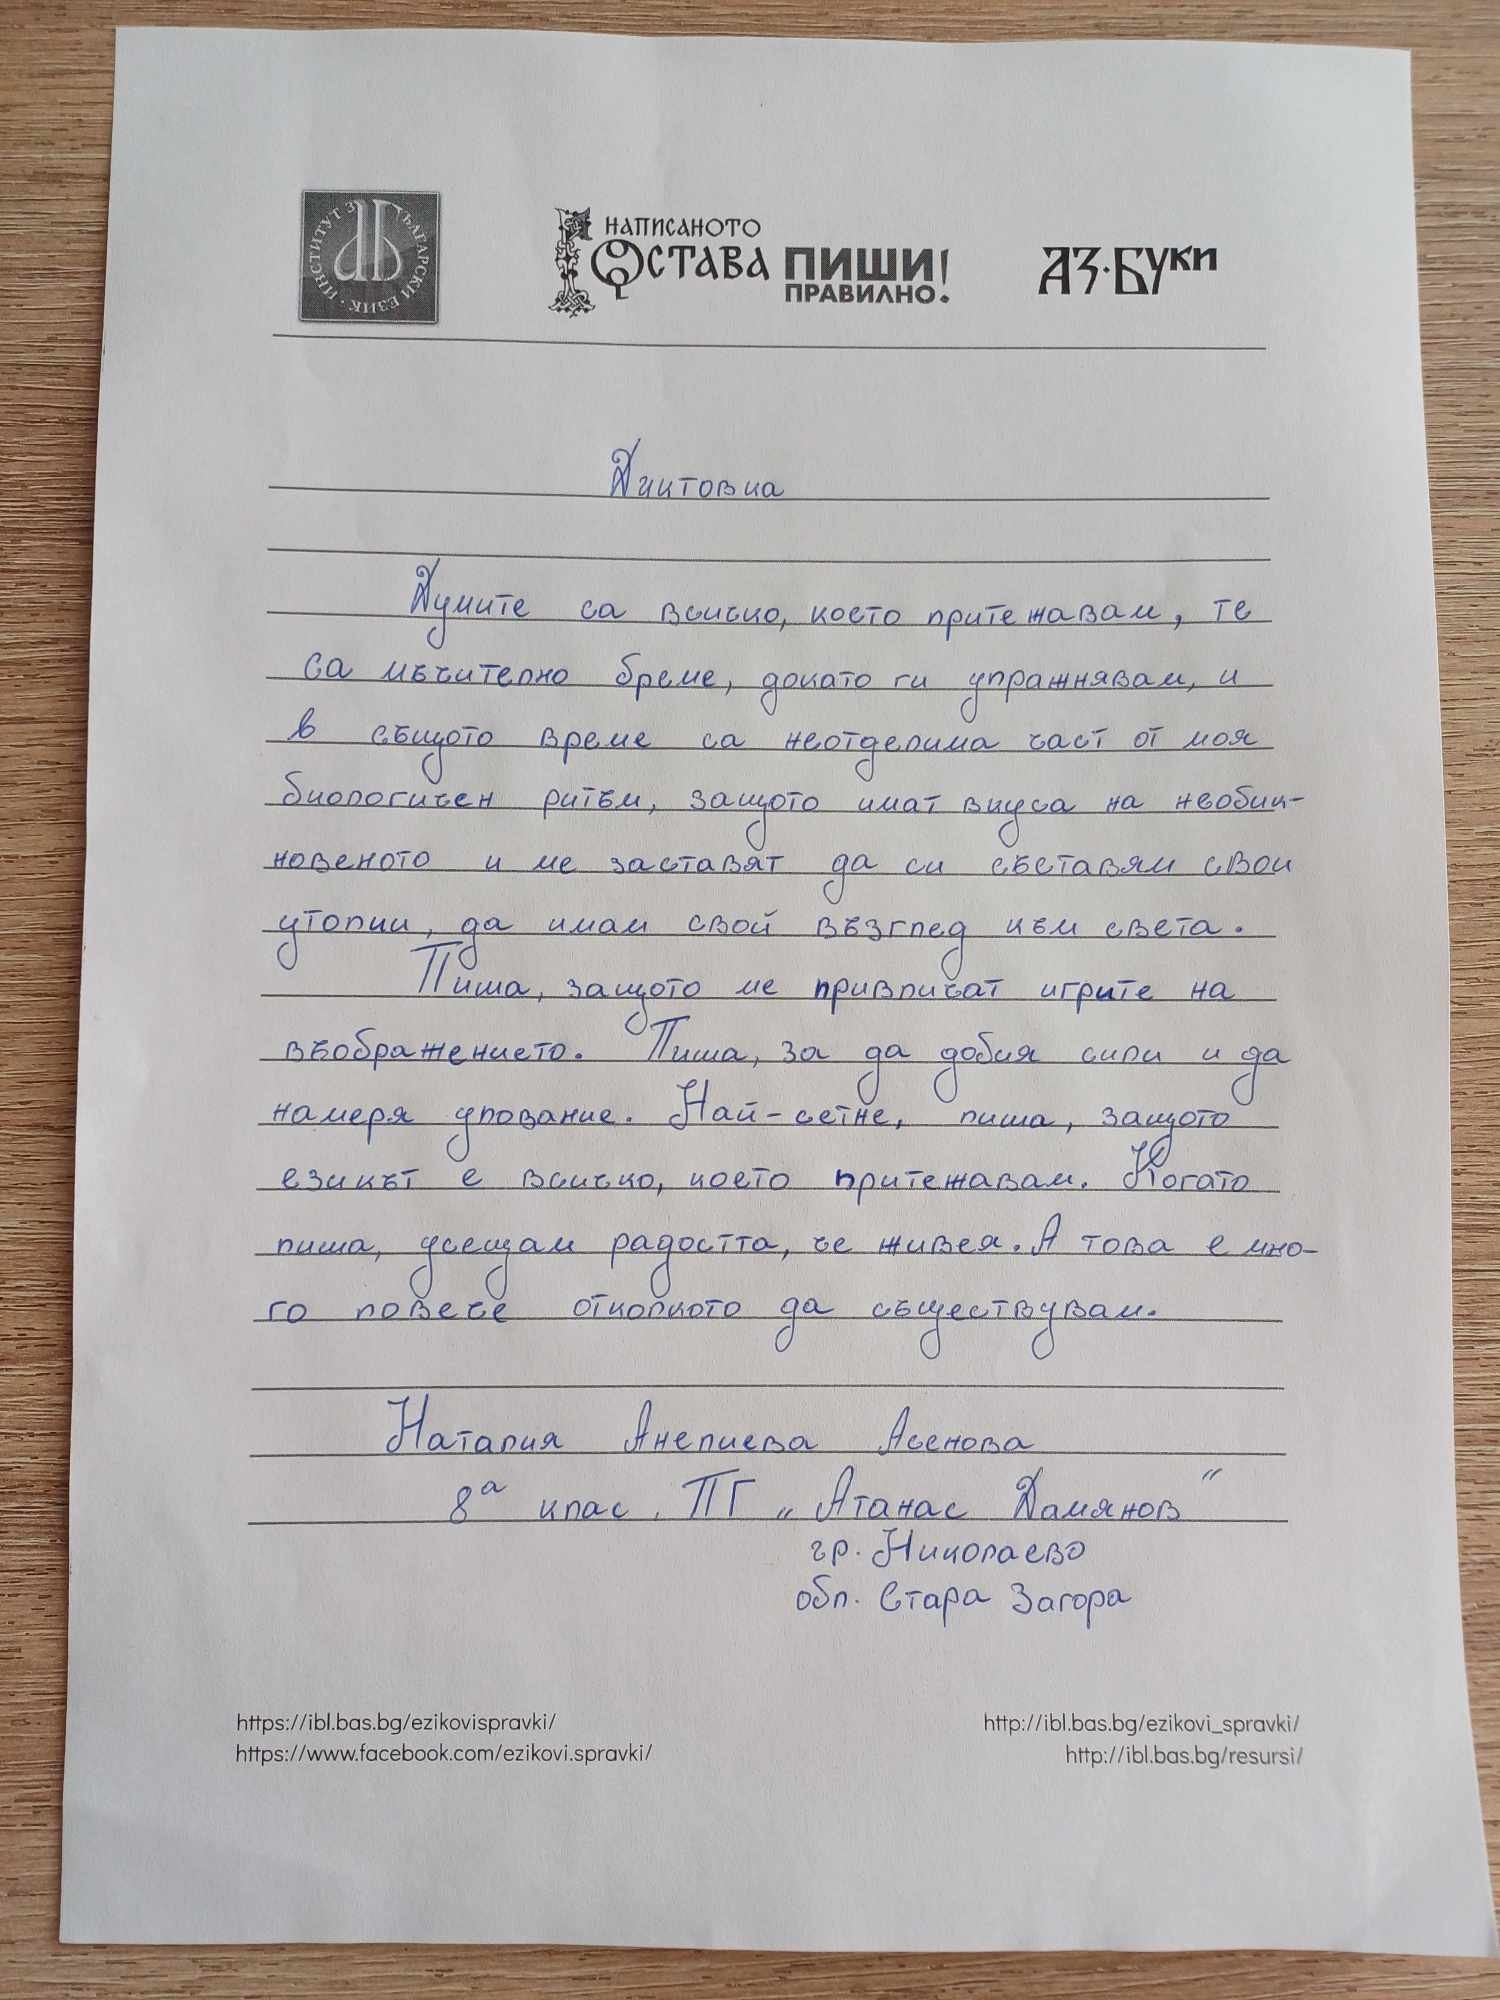 ИНСТИТУТ ЗА БЪЛГАРСКИ ЕЗИК
НАПИСАНОТО
ОСТАВА ПИШИ
ПРАВИЛНО!
АЗ·БУКИ
Диктовка
Думите са всичко, което притежавам, те
са мъчително бреме, докато ги упражнявам, и
в същото време са неотделима част от моя
биологичен ритъм, защото имат вкуса на необик-
новеното и ме заставят да си съставям свои
утопии, да имам свой възглед към света.
Пиша, защото ме привличат игрите на
въображението. Пиша, за да добия сили и да
намеря упование. Най-сетне, пиша, защото
езикът е всичко, което притежавам. Когато
пиша, усещам радостта, че живея. А това е мно-
го повече отколкото да съществувам.
Наталия Анелиева Асенова
8а клас, ПГ „Атанас Дамянов“
гр. Николаево
обл. Стара Загора
https://ibl.bas.bg/ezikovispravki/ http://ibl.bas.bg/ezikovi_spravki/
https://www.facebook.com/ezikovi.spravki/ http://ibl.bas.bg/resursi/